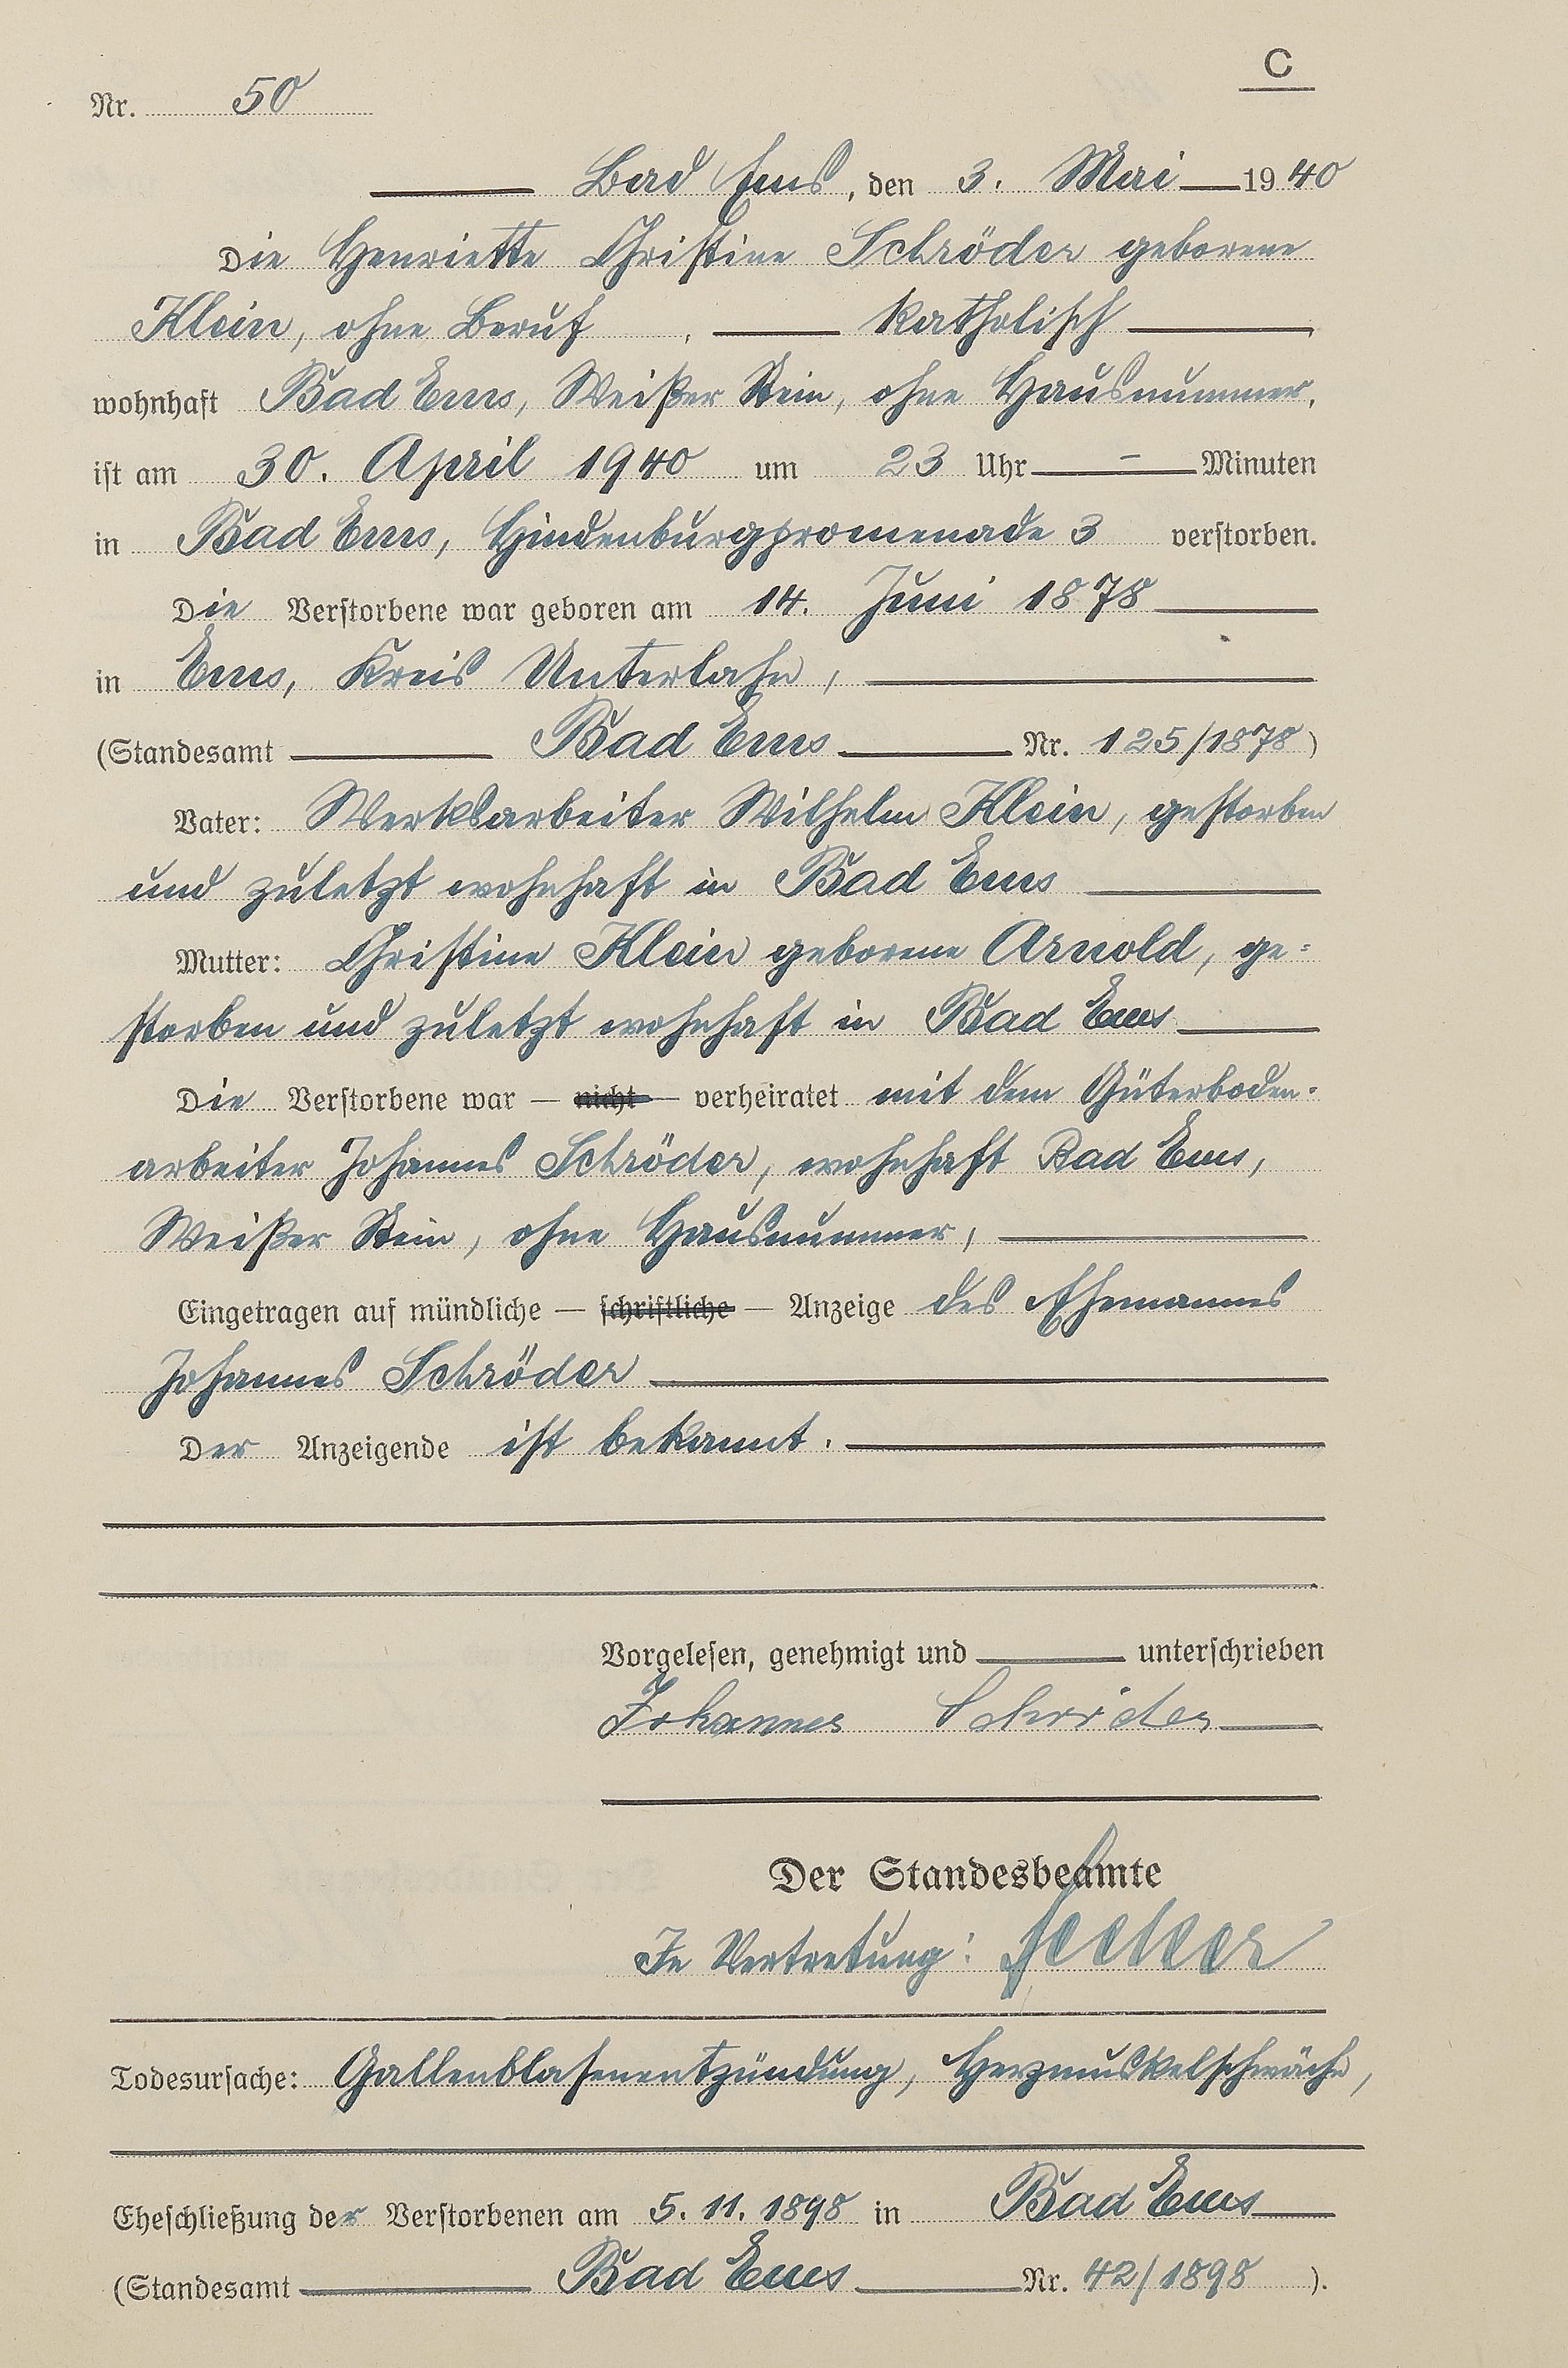 C
Nr. 50
Bad Ems, den 3. Mai 1940
Die Henriette Christine Schröder geborene
Klein, ohne Beruf, katholisch
wohnhaft Bad Ems, Weißer Stein, ohne Hausnummer,
ist am 30. April 1940 um 23 Uhr - Minuten
in Bad Ems, Hindenburgpromenade 3 verstorben.
Die Verstorbene war geboren am 14. Juni 1878
in Ems, Kreis Unterlahn,
(Standesamt Bad Ems Nr. 125/1878)
Vater: Werksarbeiter Wilhelm Klein, gestorben
und zuletzt wohnhaft in Bad Ems
Mutter: Christine Klein geborene Arnold, ge-
storben und zuletzt wohnhaft in Bad Ems
Die Verstorbene war — nicht — verheiratet mit dem Güterboden-
arbeiter Johannes Schröder, wohnhaft Bad Ems,
Weißer Stein, ohne Hausnummer,
Eingetragen auf mündliche — schriftliche — Anzeige des Ehemannes
Johannes Schröder
Der Anzeigende ist bekannt.
Vorgelesen, genehmigt und unterschrieben
Johannes Schröder
Der Standesbeamte
In Vertretung:
Todesursache: Gallenblasenentzündung, Herzmuskelschwäche,
Eheschließung der Verstorbenen am 5. 11. 1898 in Bad Ems
(Standesamt Bad Ems Nr. 42/1898).